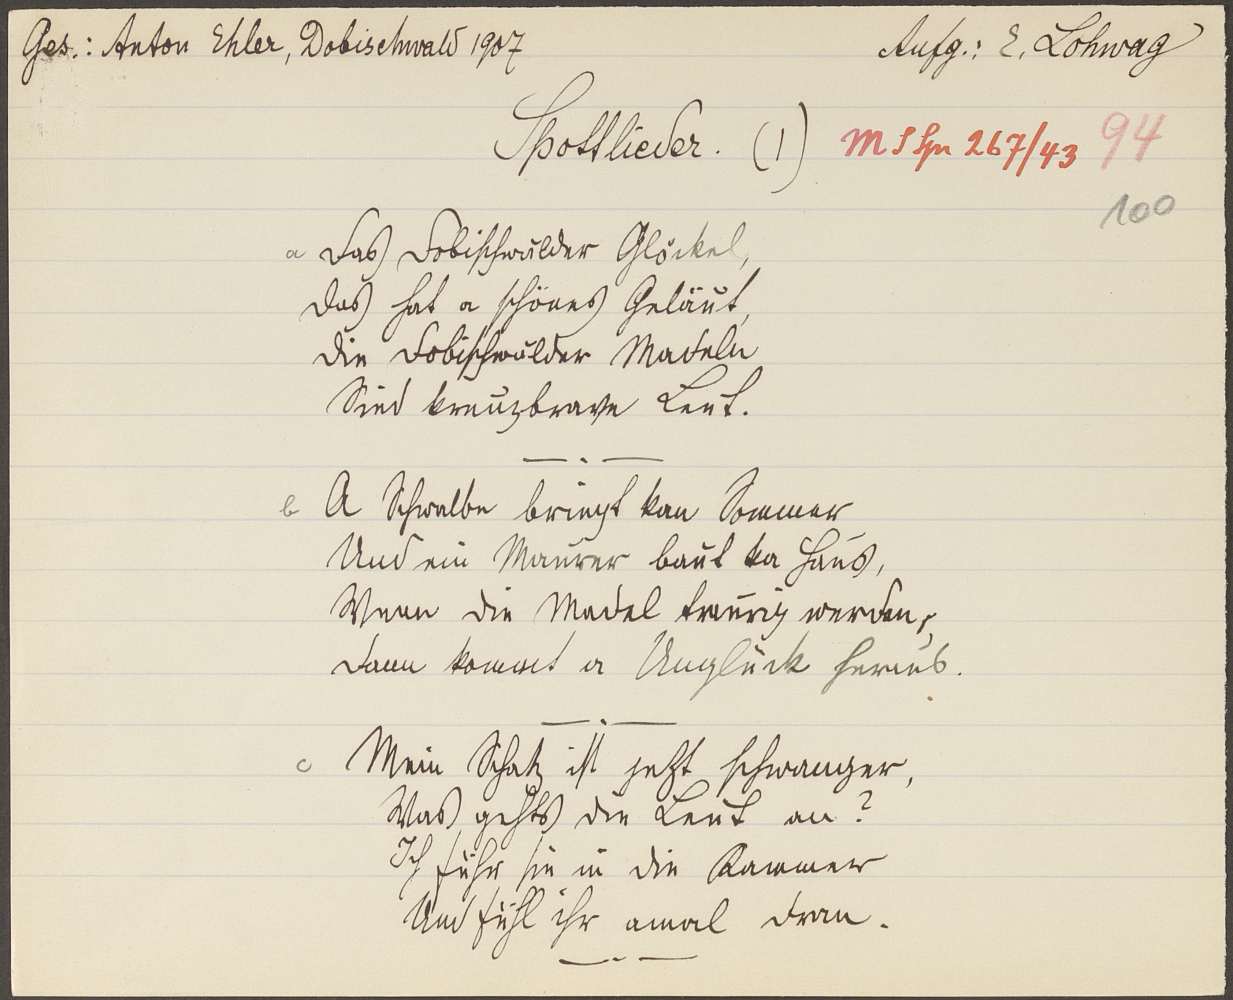 Ges.: Anton Ehler, Dobischwald 1907
Aufg.: E. Lohwag
Spottlieder. (1)
MS 267/43 94
100
a Das Dobischwalder Glöckel,
Das hat a schönes Geläut,
Die Dobischwalder Madeln
Sind kreuzbrave Leut.
b A Schwalbe bringt kan Sommer
Und ein Maurer baut ka Haus,
Wenn die Madel traurig werden,
Dann kommt a Unglück heraus.
c Mein Schatz ist jetzt schwanger,
Was gehts die Leut an?
Ich führ sie in die Kammer
Und fühl ihr amal dran.